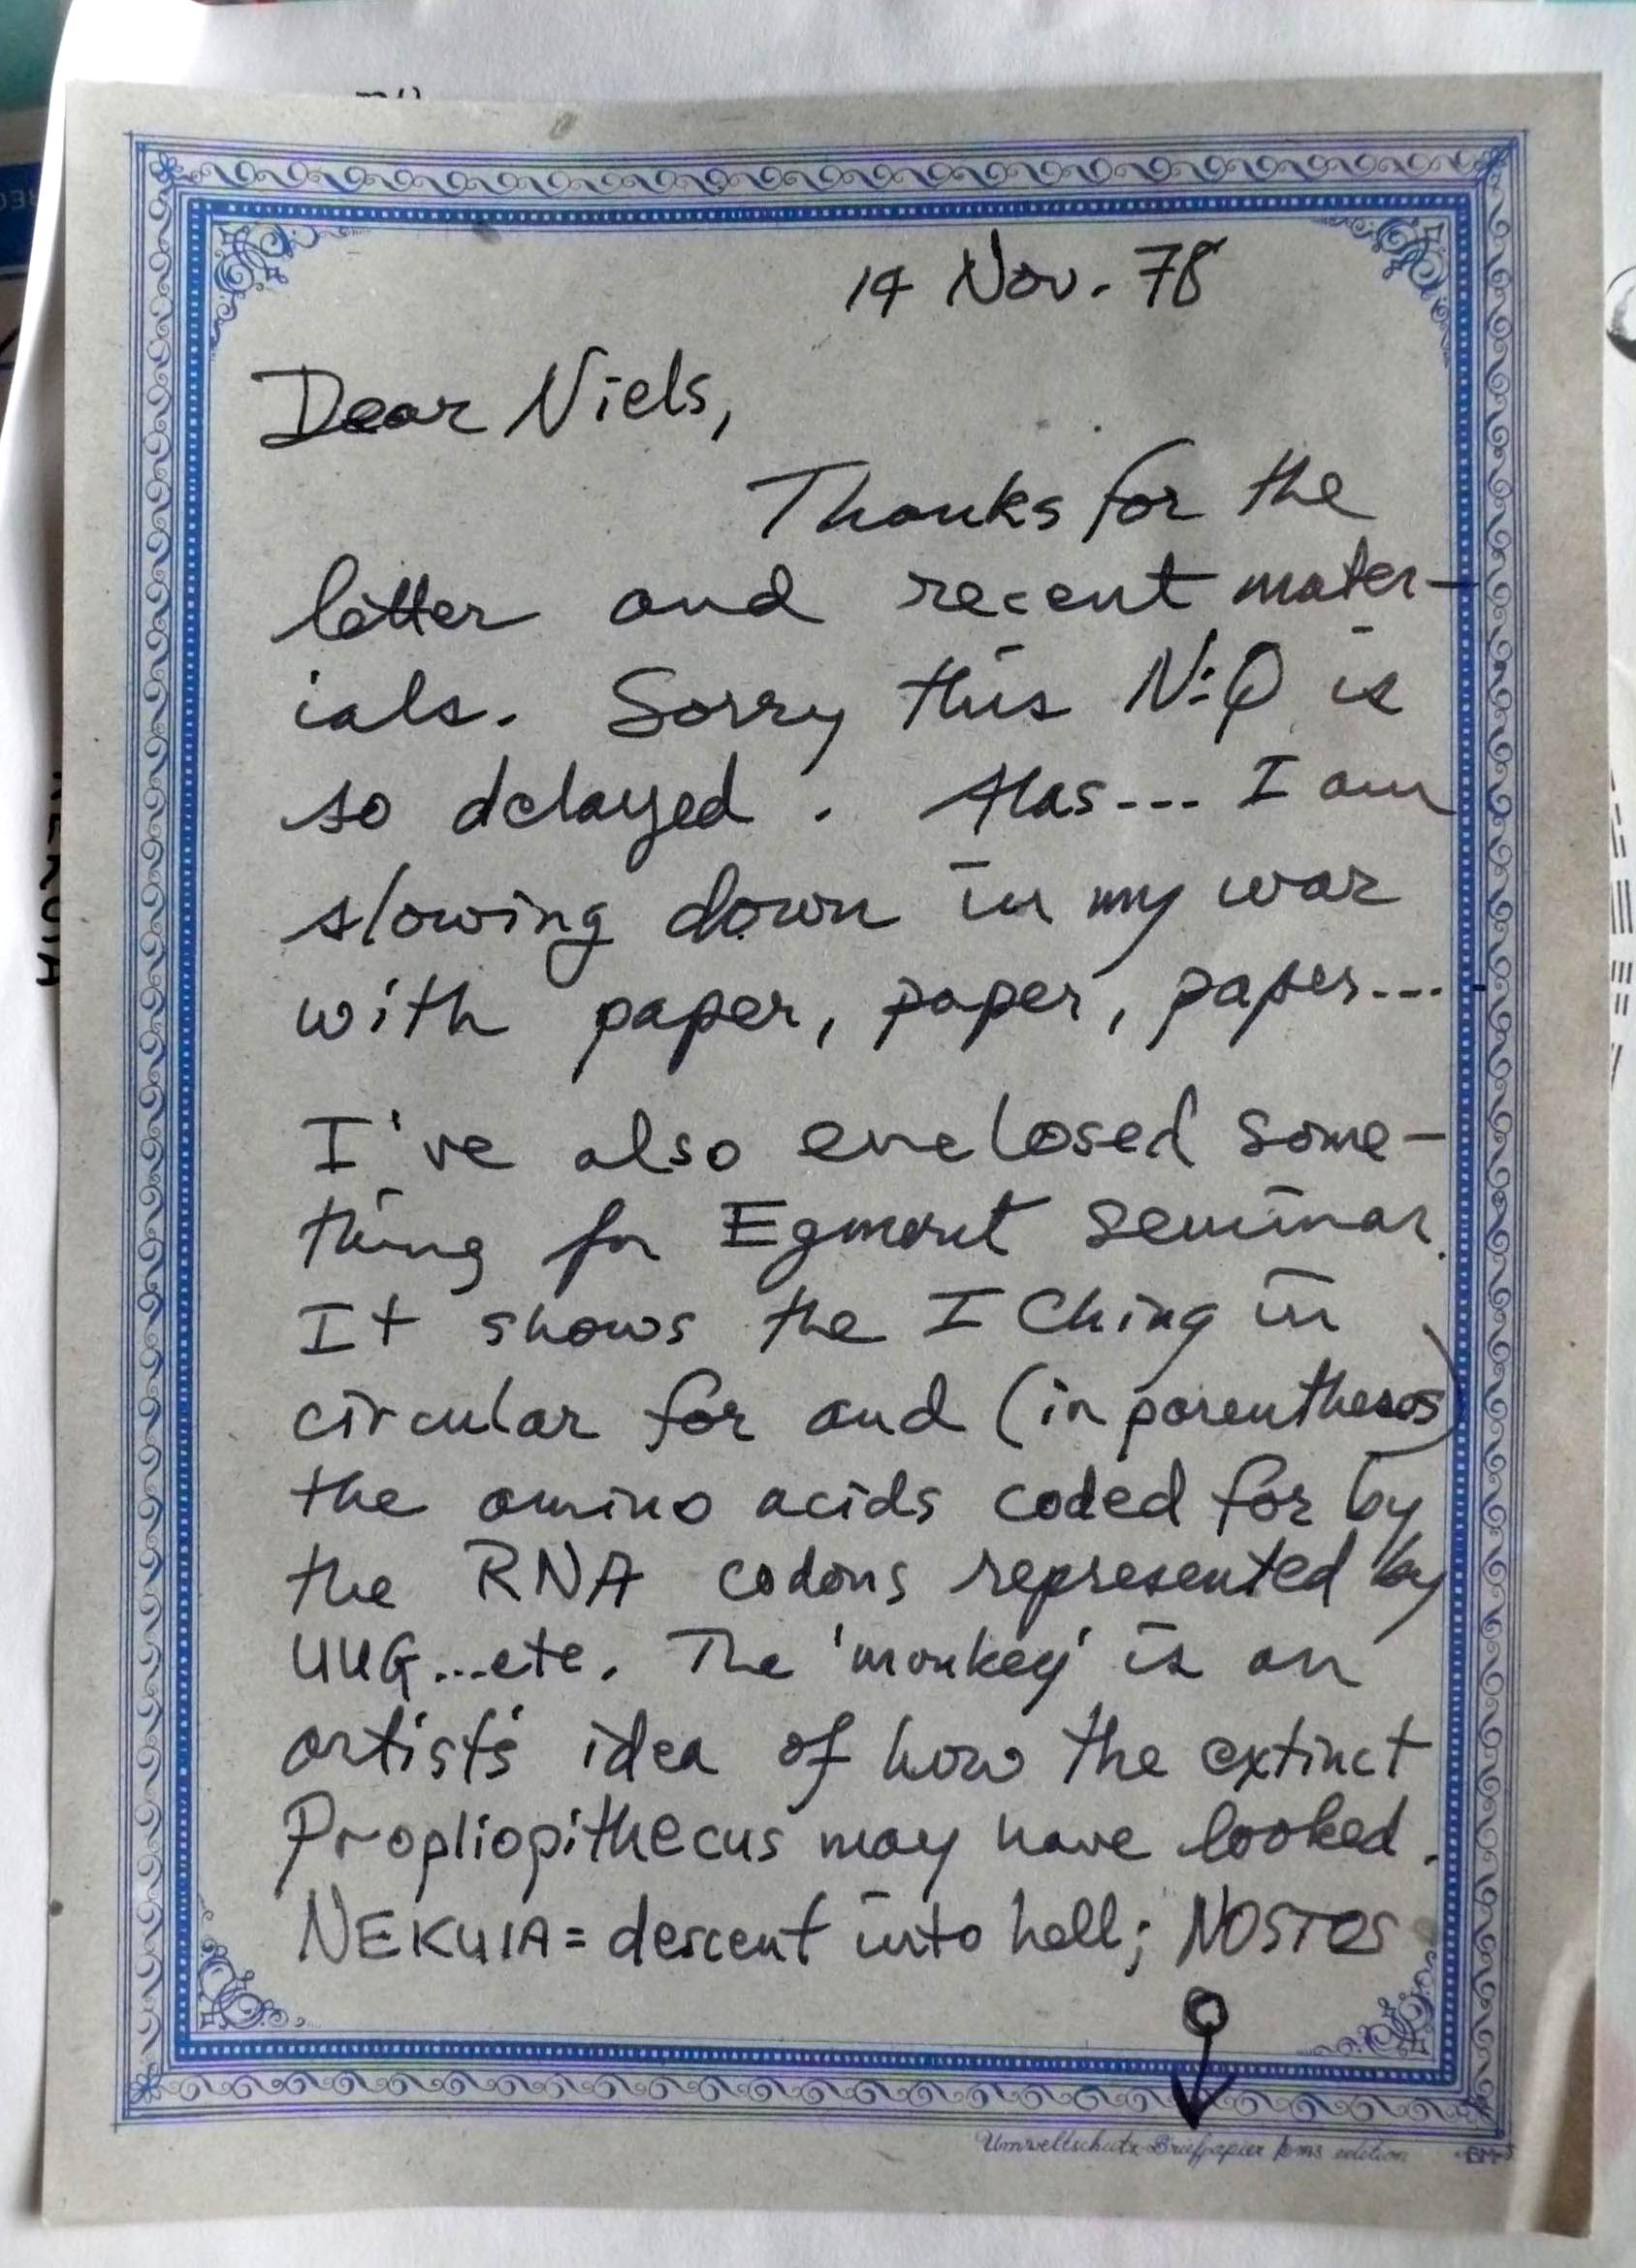 14 Nov. 78
Dear Niels,
Thanks for the
letter and recent mater-
ials. Sorry this N:Q is
so delayed. Alas--- I am
slowing down in my war
with paper, paper, paper---
I've also enclosed some-
thing for Egmont seminar.
It shows the I Ching in
circular for and (in parentheses)
the amino acids coded for by
the RNA codons represented by
UUG...etc. The 'monkey' is an
artist's idea of how the extinct
Propliopithecus may have looked.
NEKUIA = descent into hell; NOSTOS
Umweltschutz-Briefpapier bms edition
NEKUIA